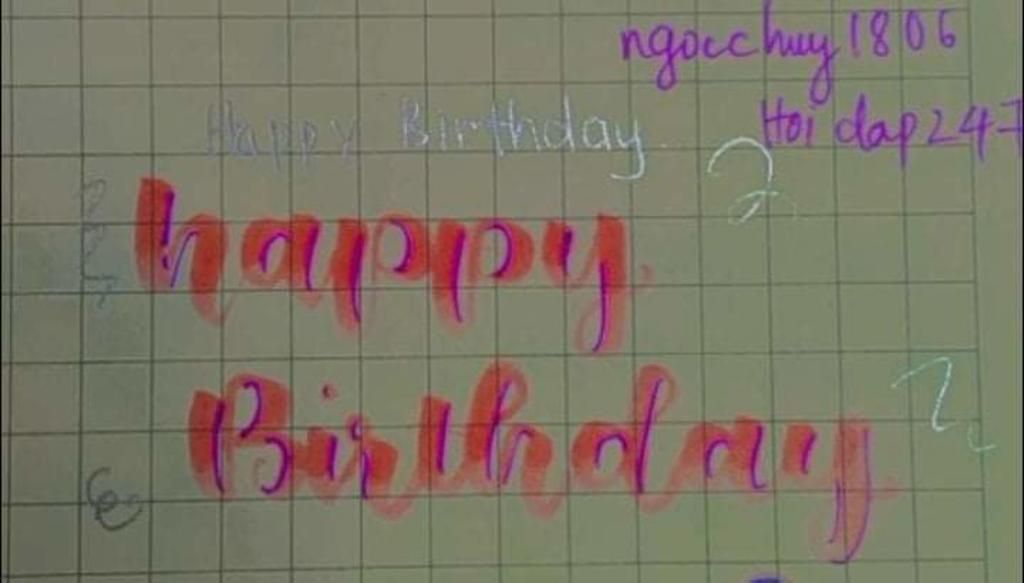 ngocchuy1806
Hoi dap247
Happy Birthday
happy
Birthday